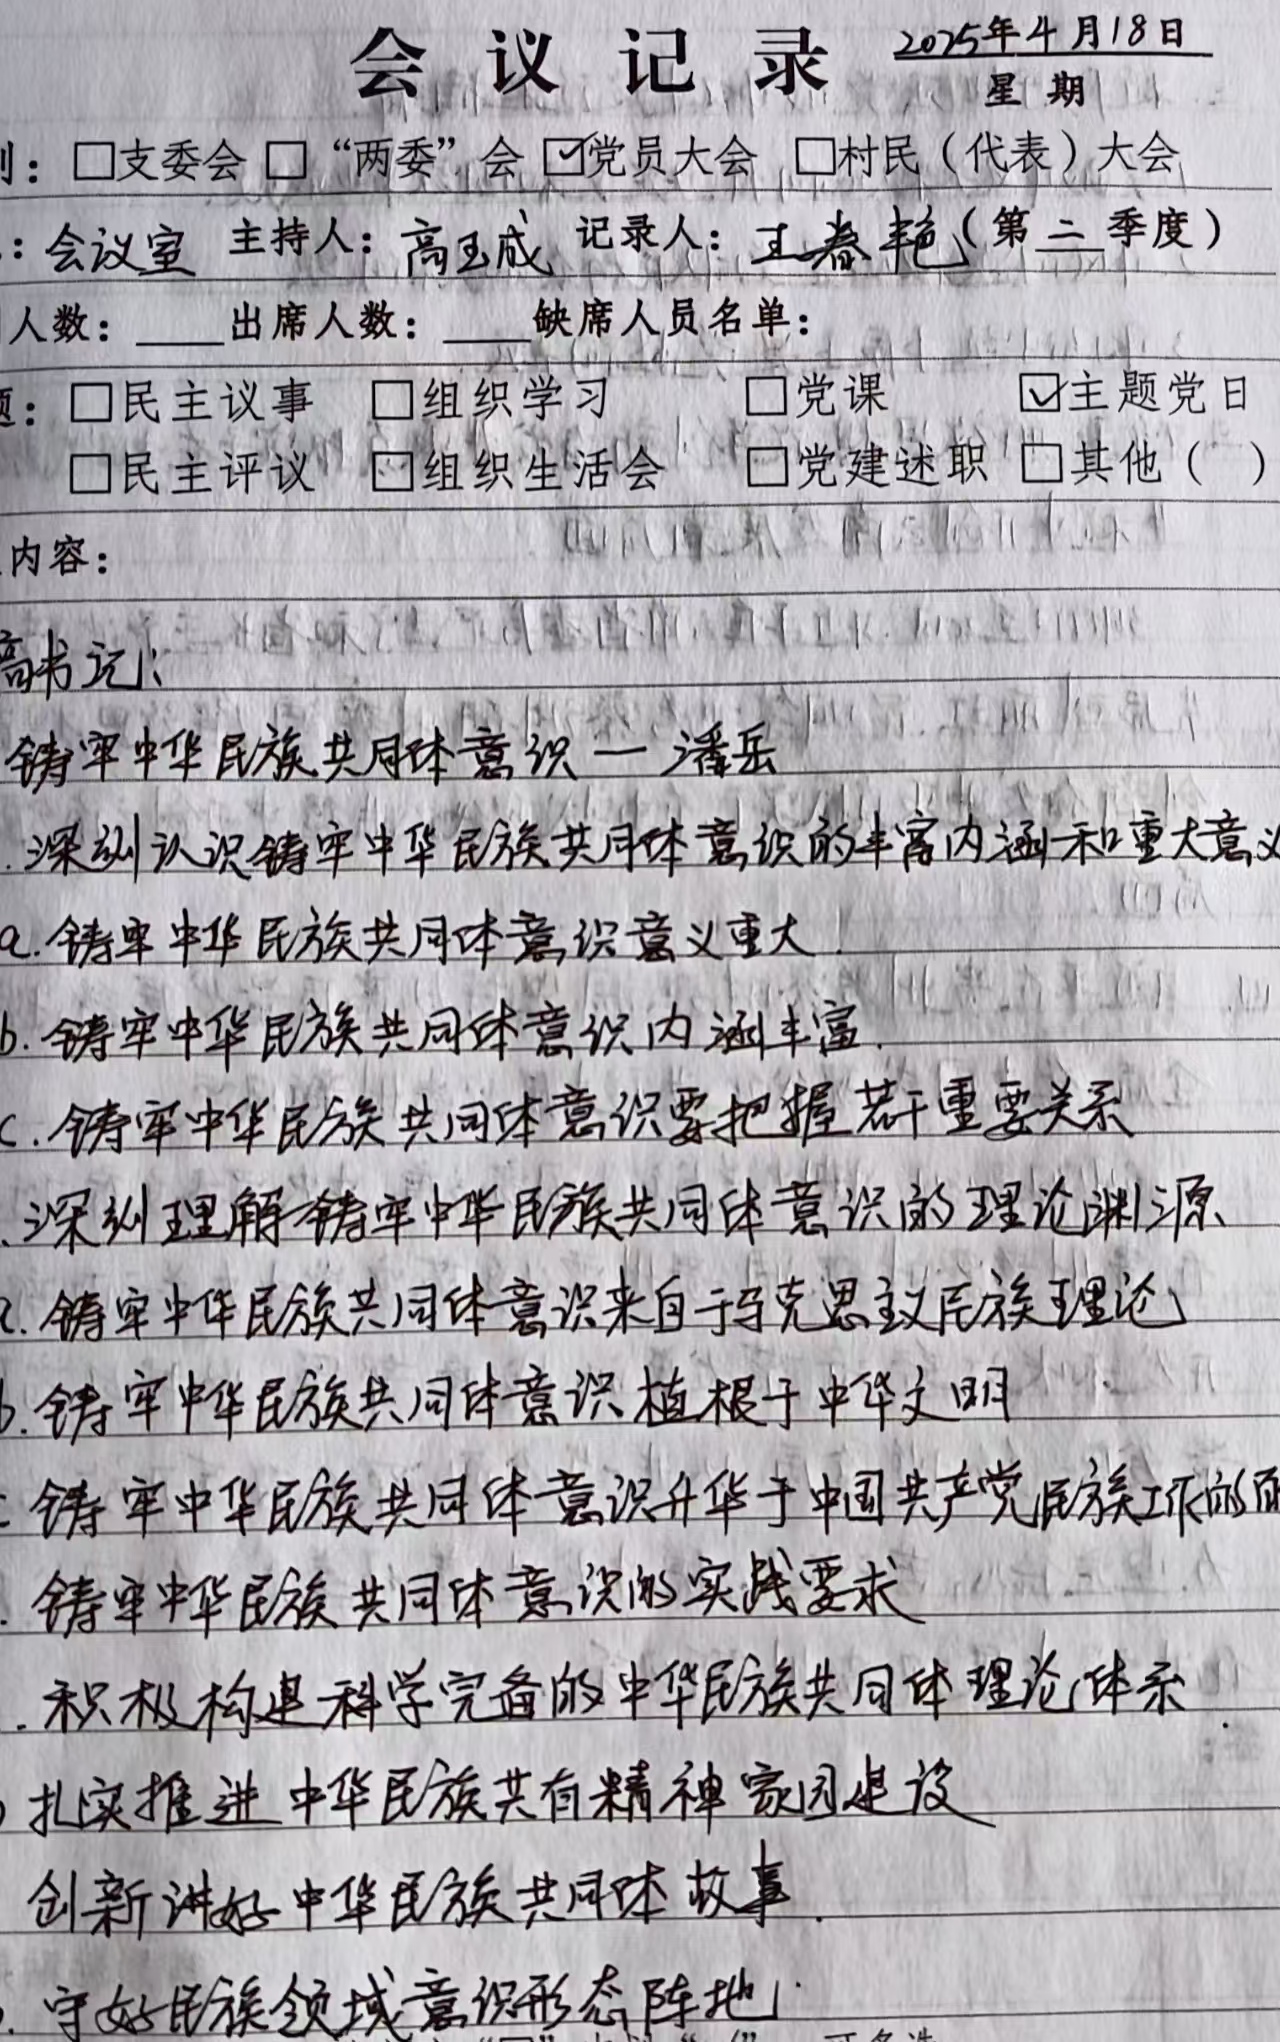 会议记录 2025年4月18日
星期
：□支委会 □“两委”会 ☑党员大会 □村民（代表）大会
：会议室 主持人：高玉成 记录人：王春艳（第二季度）
人数：____出席人数：____缺席人员名单：
：□民主议事 □组织学习 □党课 ☑主题党日
□民主评议 □组织生活会 □党建述职 □其他（ ）
内容：
高书记：
铸牢中华民族共同体意识一潘岳
.深刻认识铸牢中华民族共同体意识的丰富内涵和重大意义
a.铸牢中华民族共同体意识意义重大.
b.铸牢中华民族共同体意识内涵丰富.
c.铸牢中华民族共同体意识要把握若干重要关系
.深刻理解铸牢中华民族共同体意识的理论渊源
a.铸牢中华民族共同体意识来自于马克思主义民族理论
b.铸牢中华民族共同体意识植根于中华文明
c铸牢中华民族共同体意识升华于中国共产党民族工作的
.铸牢中华民族共同体意识的实践要求
.积极构建科学完备的中华民族共同体理论体系
扎实推进中华民族共有精神家园建设
创新讲好中华民族共同体故事.
.守好民族领域意识形态阵地.